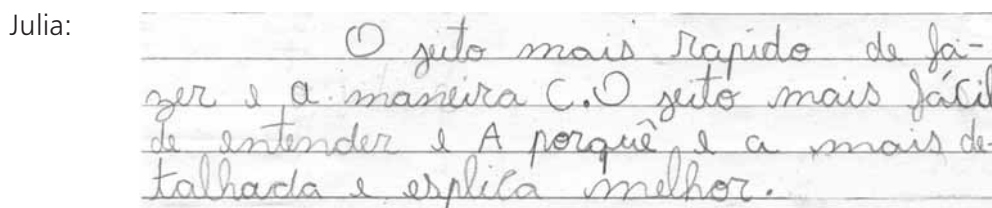 Julia:
O jeito mais rapido de fa-
zer e a maneira C. O jeito mais fácil
de entender e A porquê e a mais de-
talhada e esplica melhor.